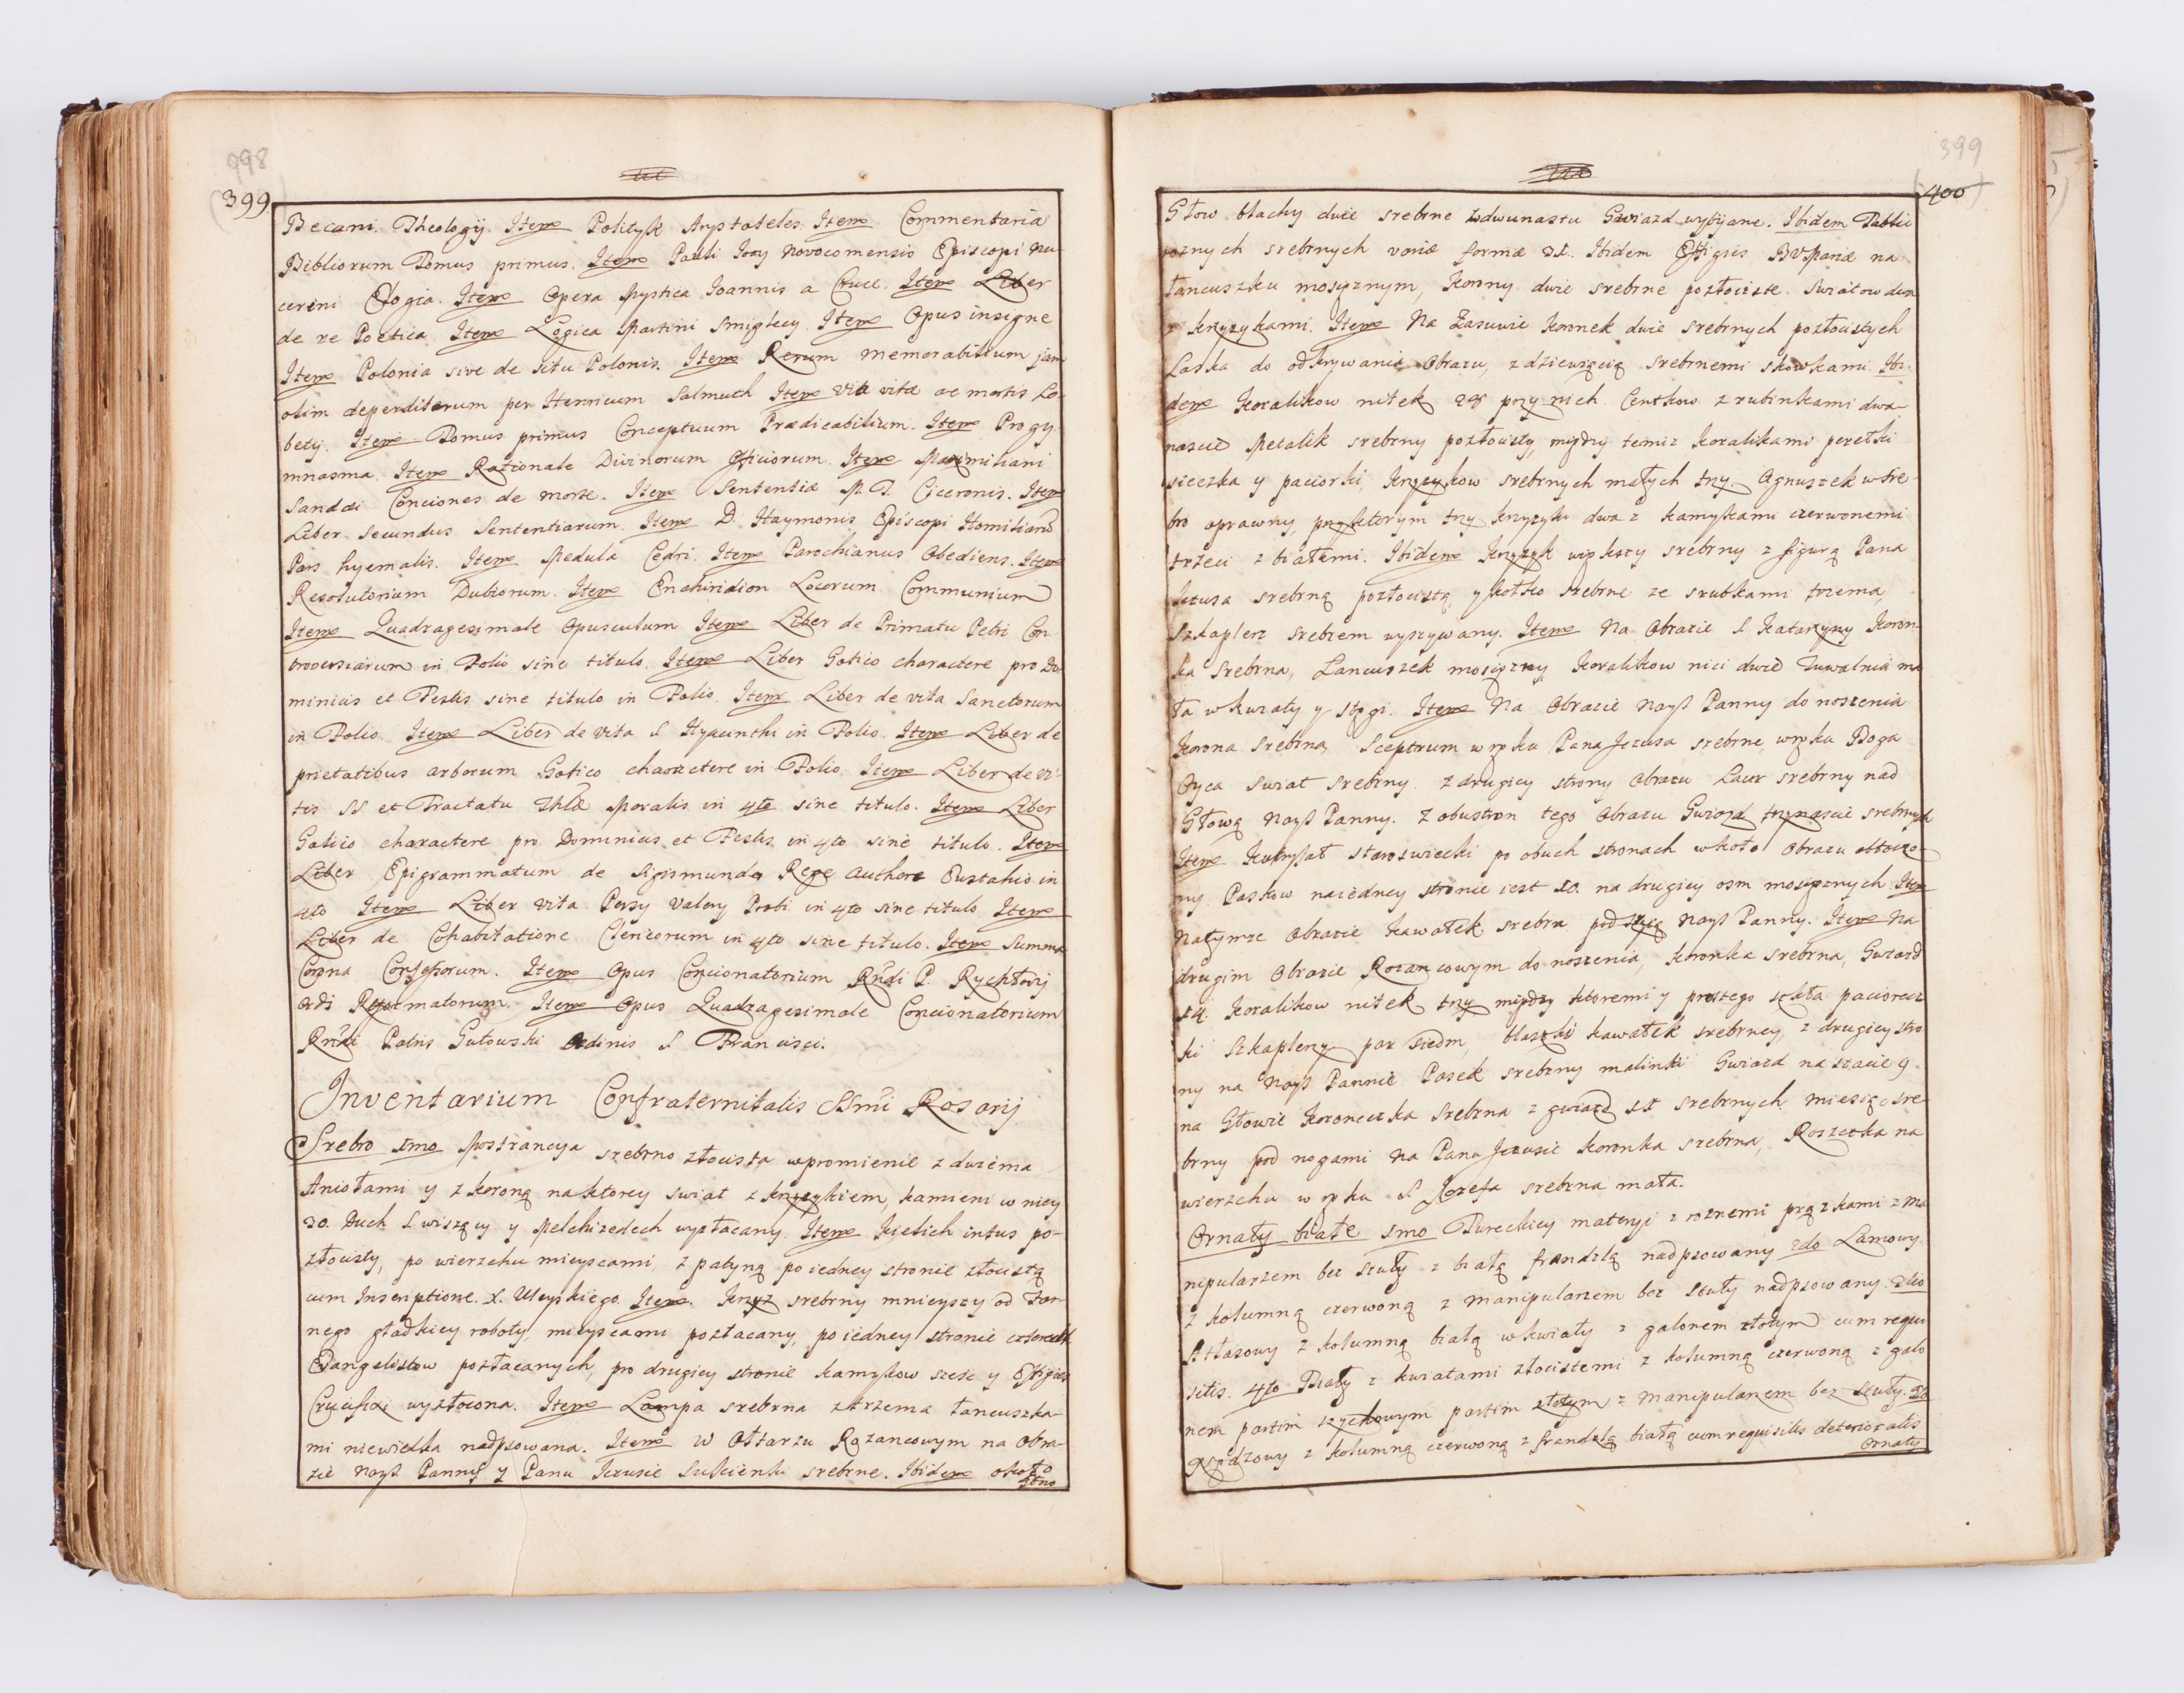 398
399.
Becani Theologij. Item Polityk Arystoteles. Item Commentaria
Bibliorum Tomus primus. Item Pauli Iovy Novocomensis Episcopi Nu-
cerini Elogia. Item Opera Mystica Joannis a Cruce. Item Liber
de re Poetica Item Logica Martini Smiglecy. Item Opus insigne
Item Polonia sive de situ Polonis. Item Rerum memorabilium jam
olim deperditarum per Henricum Salmuch Item Via vitæ ac mortis Lo-
bety. Item Tomus primus Conceptuum Prædicabilium. Item Progy-
mnasma. Item Rationale Divinorum Officiorum. Item Maximiliani
Sandæi Conciones de morte. Item Sententiæ M. T. Ciceronis. Item
Liber secundus Sententiarum. Item D. Haymonis Episcopi Homiliarū
Pars hyemalis. Item Medula Cedri. Item Parochianus Obediens. Item
Resolutorium Dubiorum. Item Enchiridion Locorum Communium
Item Quadragesimale Opusculum Item Liber de Primatu Petri Con-
troversiarum in Folio sine titulo. Item Liber Gotico charactere pro Do-
minicis et Festis sine titulo in Folio. Item Liber de vita Sanctorum
in Folio. Item Liber de vita S Hyacinthi in Folio. Item Liber de
prietatibus arborum Gotico charactere in Folio. Item Liber de vi-
tis SS et Tractatu Thlæ Moralis in 4to sine titulo. Item Liber
Gotico charactere pro Dominicis et Festis in 4to sine titulo. Item
Liber Epigrammatum de Sigismundo Rege Authore Eustahio in
4to Item Liber vita Persy Valery Probi in 4to sine titulo. Item
Liber de Cohabitatione Clericorum in 4to sine titulo. Item Summa
Corona Confessorum. Item Opus Concionatorium Rndi P. Rychłovij
Ordi Reformatorum. Item Opus Quadragesimale Concionatorium
Rndi Patris Gutowski Ordinis S Francisci.
Inventarium Confraternitatis SSmi Rosarij
Srebro 1mo Monstrancya srebrno złocista w promienie z dwiema
Aniołami y z koroną naktorey swiat z krzyzykiem, kamieni w niey
20. Duch S wiszący y Melchizedech wyzłacany. Item Kielich intus po-
złocisty, po wierzchu mieyscami, z patyną po iedney stronie złocistą
cum Inscriptione. X. Uleyskiego. Item. Krzyz srebrny mnieyszy od
nego gładkiey roboty, mieyscami pozłacany, po iedney stronie czterech
Ewangelistow pozłacanych, po drugiey stronie kamykow szesc y Effigies
Crucifixi wyzłocona. Item Lampa srebrna z trzema łancuszka-
mi niewielka nadpsowana. Item w Ołtarzu Rozancowym na Obra-
zie Nayś Panny y Panu Jezusie Sukienki srebrne. Ibidem około
Głow
399
400
Głow blachy dwie srebrne z dwunastu Gwiazd wybijane. Ibidem Tablic
roznych srebrnych variæ formæ 31. Ibidem Effigies BVMariæ na
łancuszku mosięznym, Korony dwie srebrne pozłociste Swiatow dwa
z krzyzykami. Item Na Zasuwie Koronek dwie srebrnych pozłocistych
Laska do odkrywania Obrazu, z dziewięcią srebrnemi skowkami. Ibi-
dem Koralikow nitek 28 przy nich Centkow z rubinkami dwa-
nascie Metalik srebrny pozłocisty, między temiz Koralikami perełki
sieczka y paciorki, krzyzykow srebrnych małych trzy. Agnuszek w sre-
bro oprawny, przyktorym trzy krzyzyki dwa z kamykami czerwonemi
trzeci z białemi. Ibidem Krzyzyk większy srebrny z figurą Pana
Jezusa srebrną pozłocistą, y kołko srebrne ze srubkami trzema,
Szkaplerz srebrem wyszywany. Item Na Obrazie S Katarzyny Koron-
ka srebrna, Lancuszek mosięzny, Koralikow nici dwie Tuwalnia ma
ła w kwiaty y stęgi. Item Na Obrazie Nayś Panny do noszenia
Korona srebrna, Sceptrum w ręku Pana Jezusa srebrne, w ręku Boga
Oyca swiat srebrny. z drugiey strony Obrazu Laur srebrny nad
Głową Nayś Panny. Z obustron tego Obrazu Gwiazd trzynascie srebrnych
Item staroswiecki po obuch stronach wkoło Obrazu obtoczo-
ny Paskow naiedney stronie iest 10. na drugiey osm mosięznych Item
Natymze Obrazie kawałek srebra pod szyią Nayś Panny. Item Na
drugim Obrazie Rozancowym do noszenia, koronka srebrna, Gwiazd
14. Koralikow nitek trzy między ktoremi y prostego szkła paciorecz
ki Szkaplerzy par siedm, blaszki kawałek srebrney, z drugiey stro
ny na Nayś Pannie Pasek srebrny malinki Gwiazd na szacie 9.
na Głowie Koroneczka srebrna z gwiazd 11 srebrnych, miesiąc sre-
brny pod nogami na Panu Jezusie koronka srebrna, Roszczka na
wierzchu w ręku S Jozefa srebrna mała.
Ornaty białe 1mo Tureckiey materyi z roznemi prązkami z ma
nipularzem bez stuły z białą frandzlą nadpsowany 2do Lamowy
z kolumną czerwoną z Manipularzem bez stuły nadpsowany. 3tio
Atłasowy z kolumną białą w kwiaty z galonem złotym cum requi
sitis. 4to Biały z kwiatami złocistemi z kolumną czerwoną z galo
nem partim szychowym partim złotym z Manipularzem bez stuły. 5to
z kolumną czerwoną z frandzlą białą cum requisitis deterioratis
Ornaty